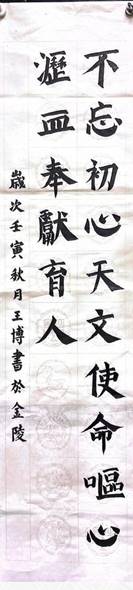 不忘初心天文使命嘔心
瀝血奉獻育人
嵗次壬寅秋月王博書於金陵